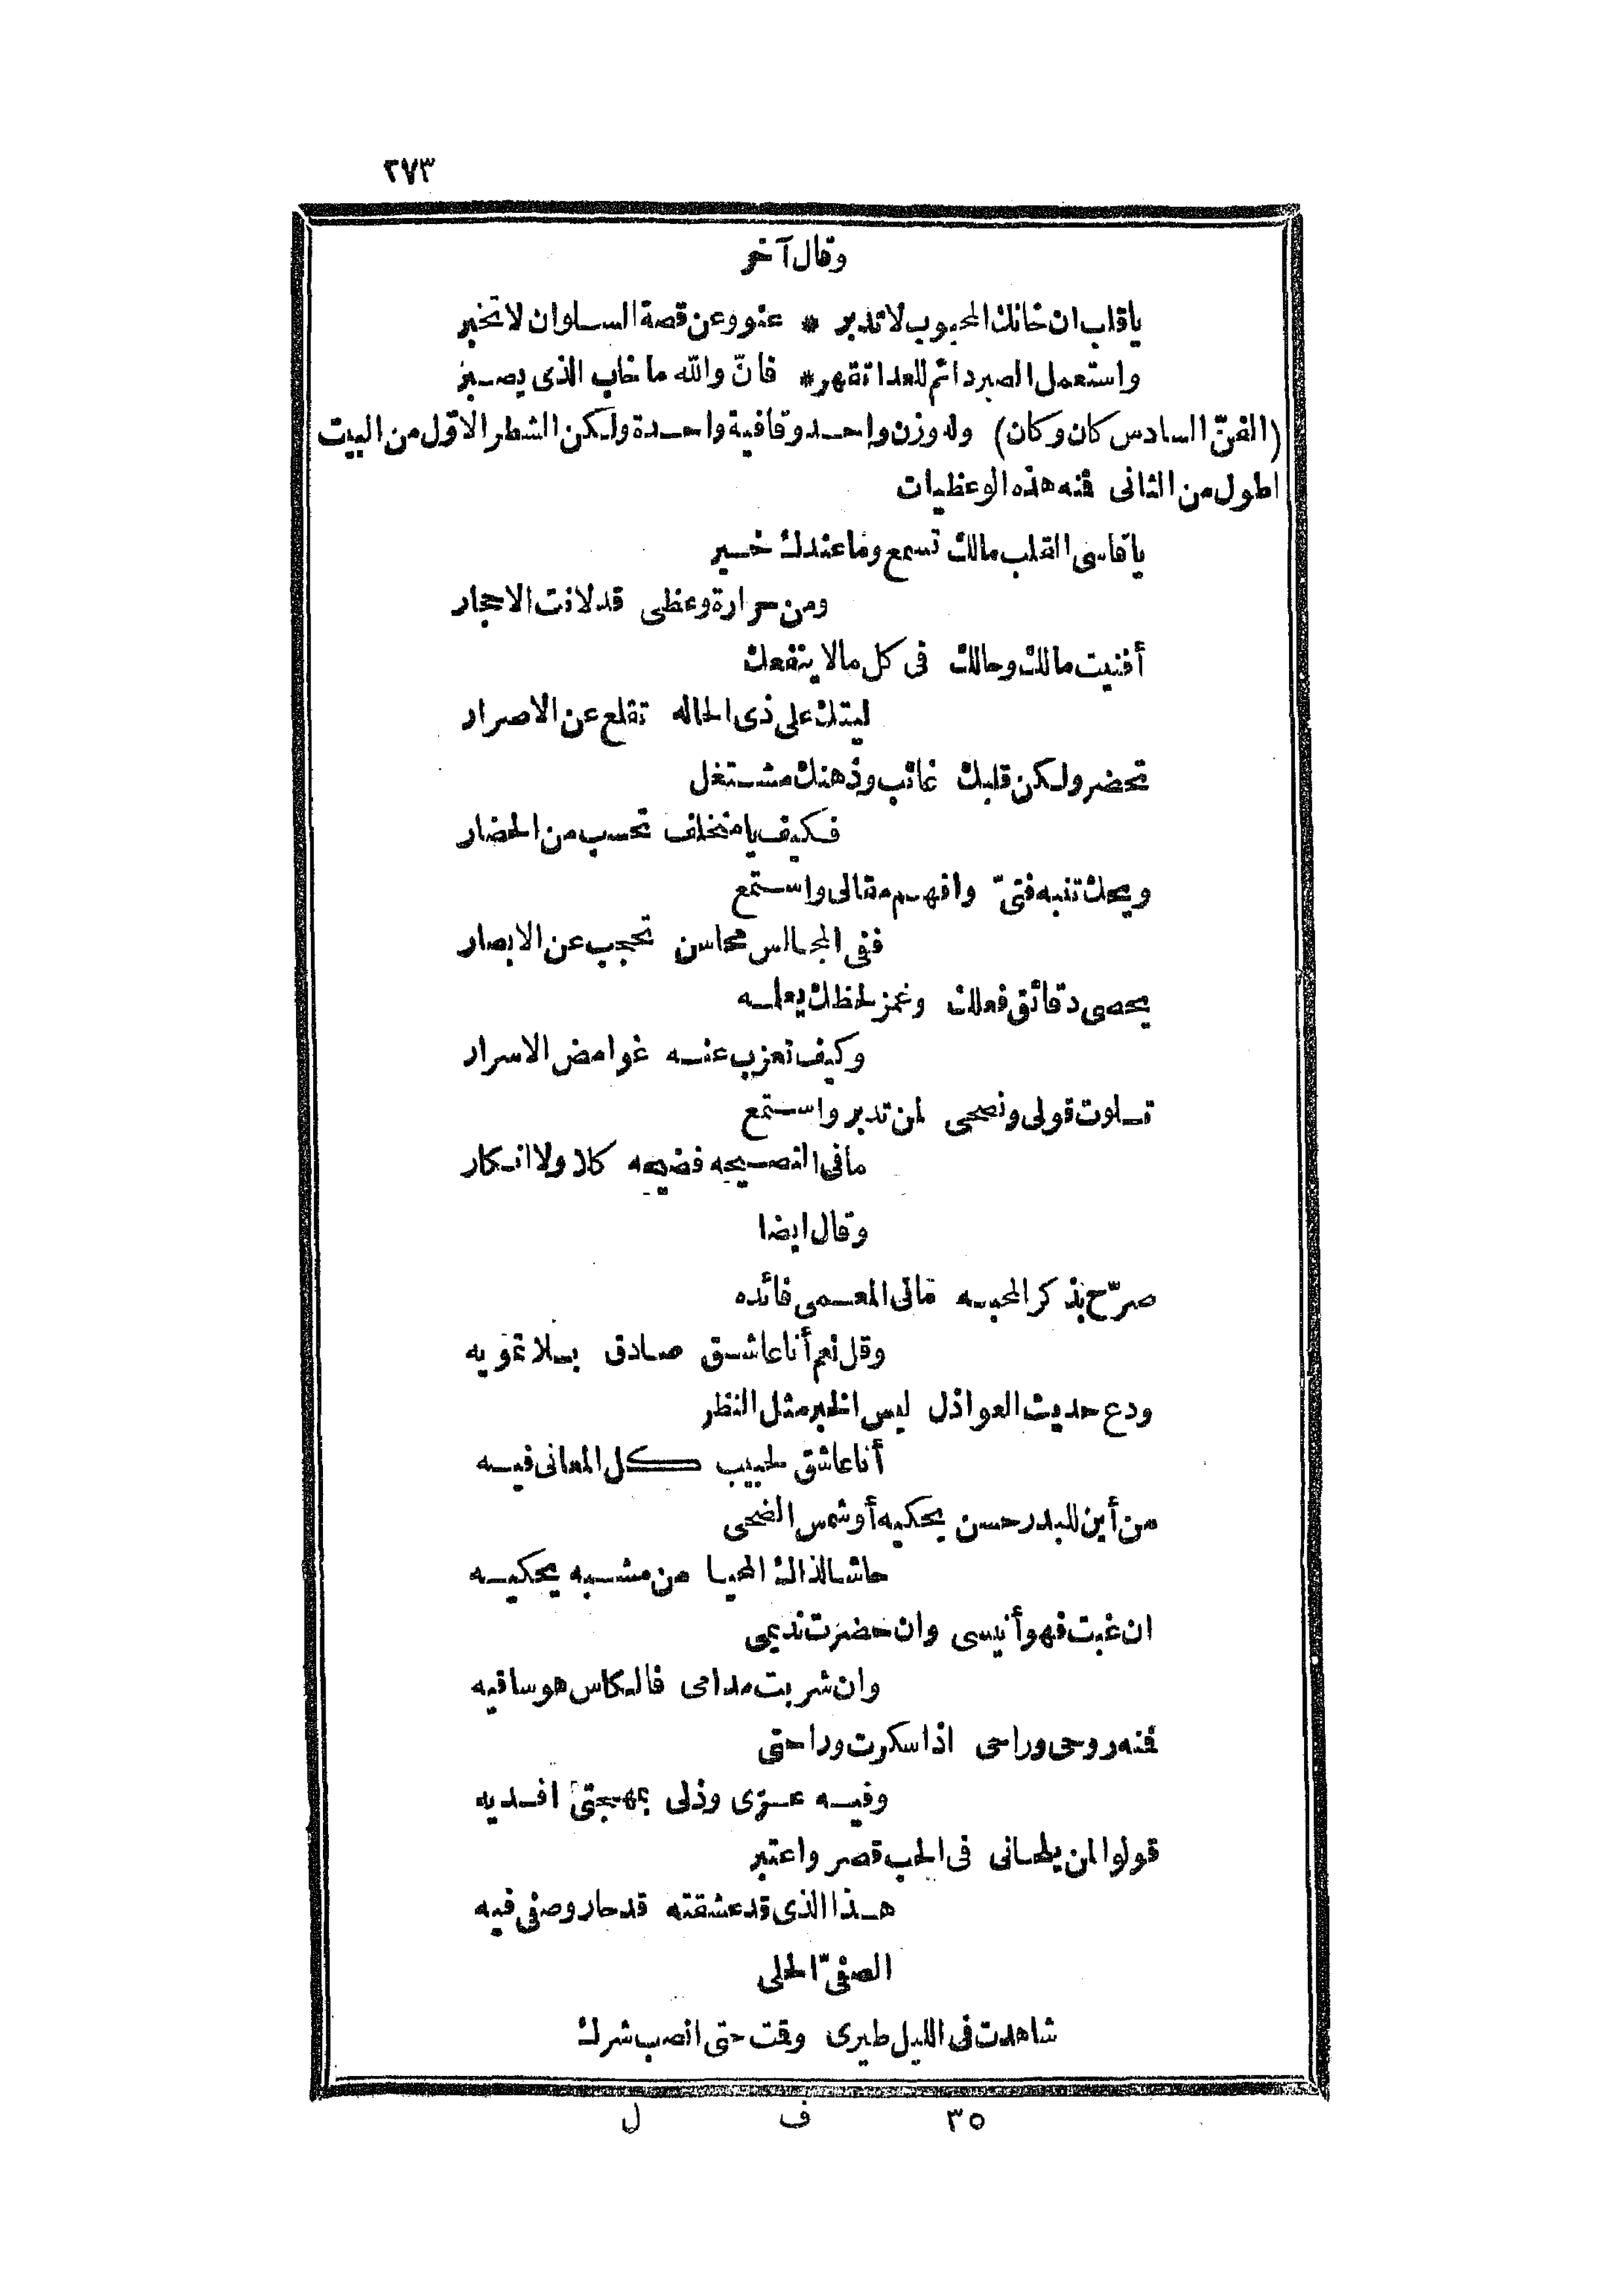 ٢٧٣
وقال آخر
يا قلب ان خانك المحبوب لا تدبر * عنو وعن قصة السلوان لا تخبر
واستعمل الصبر دائم للعدا تقهر * فانّ والله ما خاب الذى يصبر
(الفنّ السادس كان وكان) وله وزن واحد وقافية واحدة ولكن الشطر الاوّل من البيت
اطول من الثانى فمنه هذه الوعظيات
يا قاسى القلب مالك تسمع وما عندك خبر
ومن حرارة وعظى قد لانت الاحجار
أفنيت مالك وحالك فى كل مالا ينفعك
ليتك على ذى الحاله تقلع عن الاصرار
تحضر ولكن قلبك غائب وذهنك مشتغل
فكيف يا متخلف تحسب من الحضار
ويحك تنبه فتىّ وافهم مقالى واستمع
ففى المجالس محاسن تحجب عن الابصار
يحصى دقائق فعلك وغمز لحظك يعلمه
وكيف تعزب عنه غوامض الاسرار
تلوت قولى ونصحى لمن تدبر واستمع
ما فى النصيحه فضيحه كلا ولا انكار
وقال ايضا
صرّح بذكر المحبه فما فى المعمى فائده
وقل نعم أنا عاشق صادق بلا تمويه
ودع حديث العواذل ليس الخبر مثل النظر
أنا عاشق لحبيب كل المعانى فيه
من أين للبدر حسن يحكيه أو شمس الضحى
حاشا لذاك المحيا من مشبه يحكيه
ان غبت فهو أنيسى وان حضرت نديمى
وان شربت مدامى فالكاس هو ساقيه
فمنه روحى وراحى اذا سكرت وراحتى
وفيه عزّى وذلى بمهجتى افديه
قولوا لمن يلحانى فى الحب قصر واعتبر
هذا الذى قد عشقته قد حار وصفى فيه
الصفىّ الحلى
شاهدت فى الليل طيرى وقمت حتى انصب شرك
٣٥ ف ل